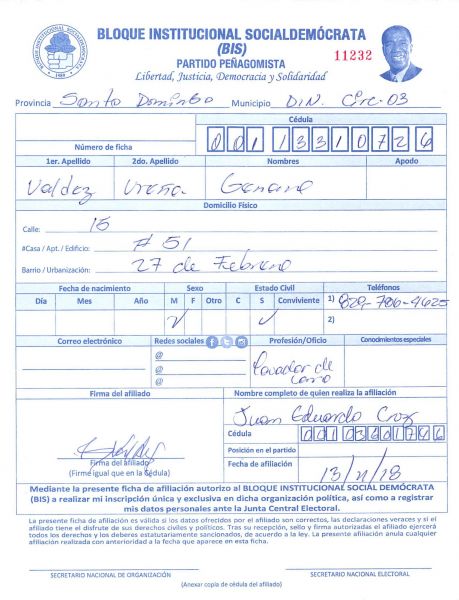 BLOQUE INSTITUCIONAL SOCIALDEMÓCRATA
(BIS)
PARTIDO PEÑAGOMISTA
Libertad, Justicia, Democracia y Solidaridad
11232
Provincia Santo Domingo Municipio D.N. Circ. 03
Cédula
Número de ficha 001 1331072 6
1er. Apellido 2do. Apellido Nombres Apodo
Valdez Ureña Genaro
Domicilio Físico
Calle: 15
#Casa / Apt. / Edificio: # 51
Barrio / Urbanización: 27 de Febrero
Fecha de nacimiento Sexo Estado Civil Teléfonos
Día Mes Año M F Otro C S Conviviente 1) 829-706-4625
2)
Correo electrónico Redes sociales Profesión/Oficio Conocimientos especiales
@
@
@
Lavador de
carro
Firma del afiliado Nombre completo de quien realiza la afiliación
Juan Eduardo Cruz
Cédula 001 0360174 6
Posición en el partido
Firma del afiliado
(Firme igual que en la Cédula)
Fecha de afiliación 13/11/18
Mediante la presente ficha de afiliación autorizo al BLOQUE INSTITUCIONAL SOCIAL DEMÓCRATA
(BIS) a realizar mi inscripción única y exclusiva en dicha organización política, así como a registrar
mis datos personales ante la Junta Central Electoral.
La presente ficha de afiliación es válida si los datos ofrecidos por el afiliado son correctos, las declaraciones veraces y si el
afiliado tiene el disfrute de sus derechos civiles y políticos. Tras su recepción, sello y firma autorizadas el afiliado ejercerá
todos los derechos y los deberes estatutariamente sancionados, de acuerdo a la ley. La presente afiliación anula cualquier
afiliación realizada con anterioridad a la fecha que aparece en esta ficha.
SECRETARIO NACIONAL DE ORGANIZACIÓN SECRETARIO NACIONAL ELECTORAL
(Anexar copia de cédula del afiliado)